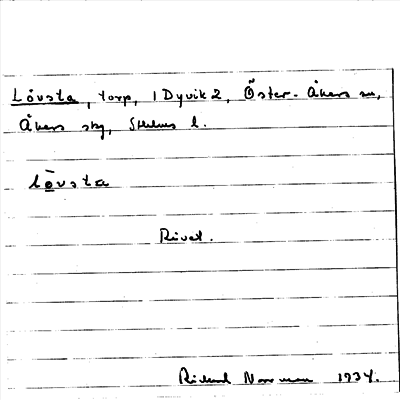 Lövsta, torp, 1 Dyvik 2, Öster-Åkers sn,
Åkers skg, Sthlms l.
lō̲vsta
Rivet.
Rickard Norrman 1934.